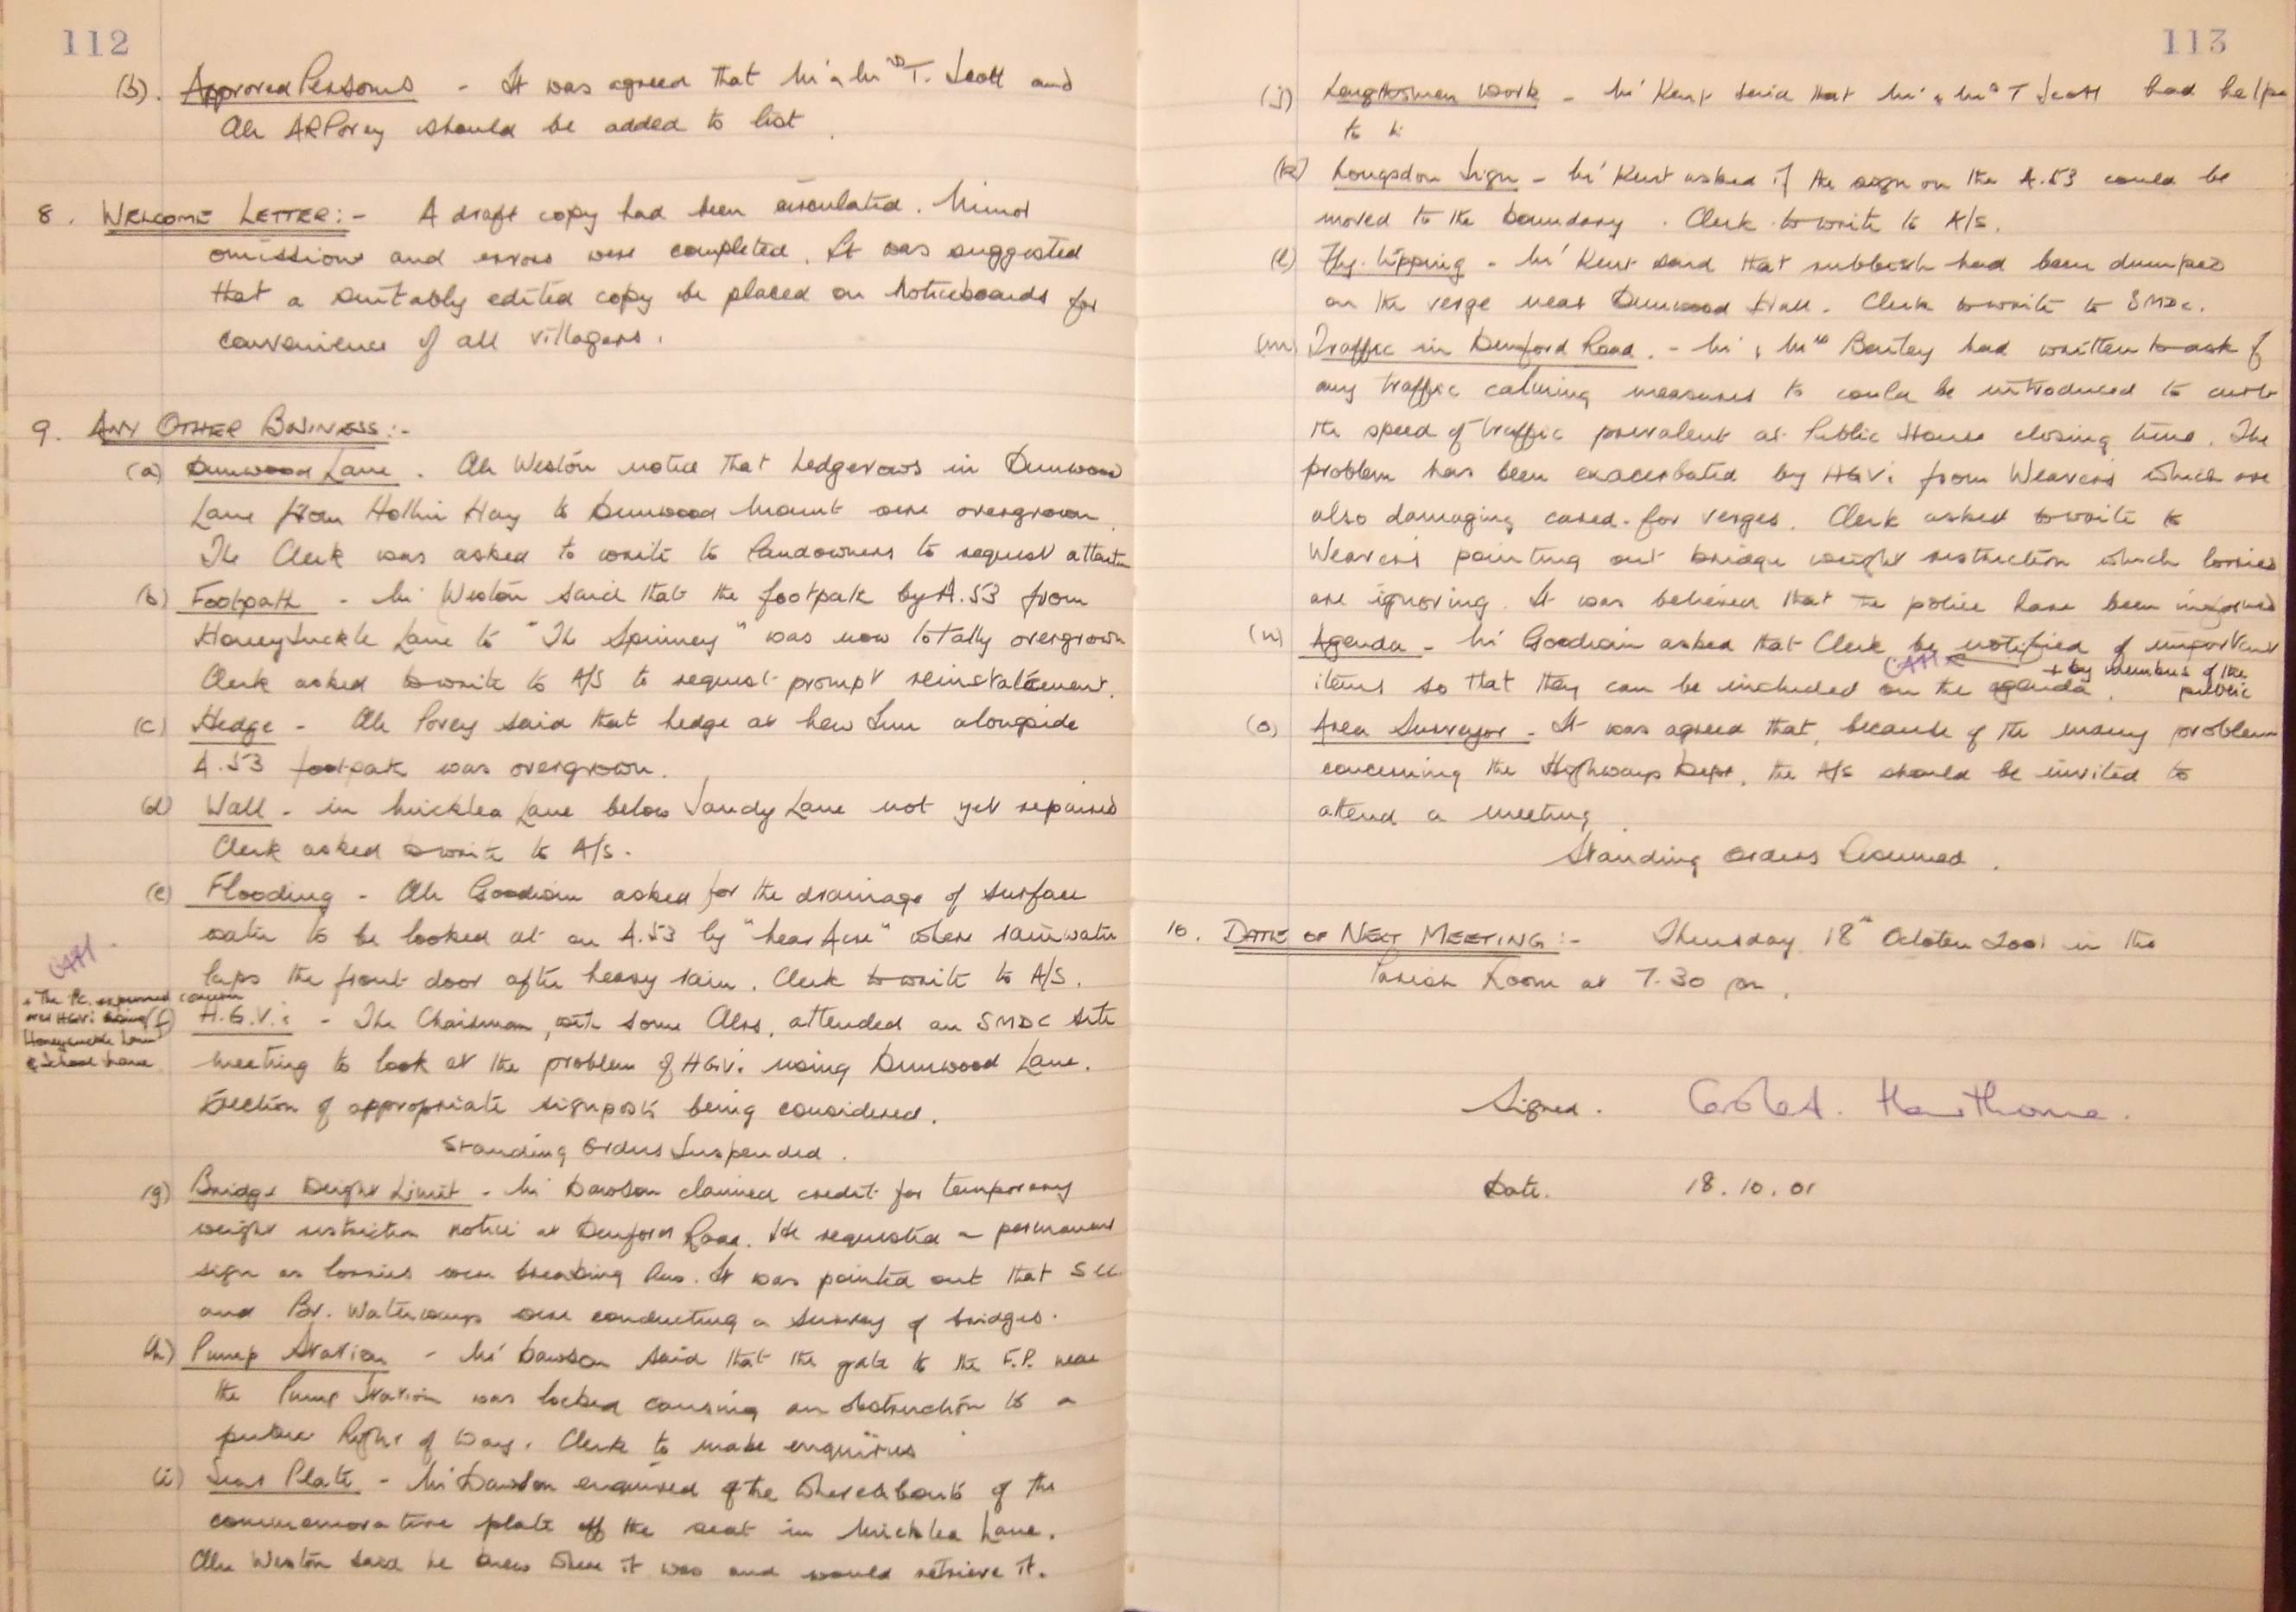 112
(b). Approved Persons - It was agreed that Mr & Mrs T. Scott and
Cllr A R Povey should be added to list.
8. WELCOME LETTER:- A draft copy had been circulated. Minor
omissions and errors were completed. It was suggested
that a suitably edited copy be placed on Noticeboards for
convenience of all villagers.
9. ANY OTHER BUSINESS:-
(a) Dunwood Lane. Cllr Weston noted that hedgerows in Dunwood
Lane from Hollin Hay to Dunwood Mount were overgrown.
The Clerk was asked to write to landowners to request attention
(b) Footpath - Mr Weston said that the footpath by A.53 from
Honeysuckle Lane to "The Spinney" was now totally overgrown
Clerk asked to write to A/S to request prompt reinstatement.
(c) Hedge - Cllr Povey said that hedge at New Inn alongside
A.53 footpath was overgrown.
(d) Wall - in Micklea Lane below Sandy Lane not yet repaired
Clerk asked to write to A/S.
(e) Flooding - Cllr Goodwin asked for the drainage of surface
water to be looked at on A.53 by "Near Acre" where rainwater
laps the front door after heavy rain. Clerk to write to A/S.
CAH
+ The P.C. expressed concern
over HGVs using
Honeysuckle Lane
& School Lane
(f) H.G.V.s - The Chairman, with some Cllrs, attended an SMDC site
meeting to look at the problem of HGVs using Dunwood Lane.
Erection of appropriate signposts being considered.
Standing Orders Suspended.
(g) Bridge Weight Limit - Mr Dawson claimed credit for temporary
weight restriction notice at Denford Road. He requested a permanent
sign as lorries were breaking law. It was pointed out that SCC
and Br. Waterways were conducting a survey of bridges.
(h) Pump Station - Mr Dawson said that the gate to the F.P. near
the Pump Station was locked causing an obstruction to a
public Right of Way. Clerk to make enquiries
(i) Seat Plate - Mr Dawson enquired of the whereabouts of the
commemorative plate off the seat in Micklea Lane.
Cllr Weston said he knew where it was and would retrieve it.
113
(j) Lengthsman work - Mr Kent said that Mr & Mrs T Scott had helped
to
(k) Longsdon Sign - Mr Kent asked if the sign on the A.53 could be
moved to the boundary. Clerk to write to A/S.
(l) Fly-tipping - Mr Kent said that rubbish had been dumped
on the verge near Dunwood Hall. Clerk to write to SMDC.
(m) Traffic in Denford Road. - Mr & Mrs Bentey had written to ask if
any traffic calming measures to could be introduced to curb
the speed of traffic prevalent at Public House closing time. The
problem has been exacerbated by HGVs from Weavers which are
also damaging cared-for verges. Clerk asked to write to
Weavers pointing out bridge weight restriction which lorries
are ignoring. It was believed that the police have been informed
(n) Agenda - Mr Goodwin asked that Clerk be notified of important
CAH + by members of the
items so that they can be included on the agenda. public
(o) Area Surveyor - It was agreed that, because of the many problems
concerning the Highways Dept, the A/S should be invited to
attend a meeting.
Standing Orders Resumed.
10. DATE OF NEXT MEETING:- Thursday 18th October 2001 in the
Parish Room at 7.30 pm.
Signed. Carole A. Hawthorne.
Date. 18.10.01